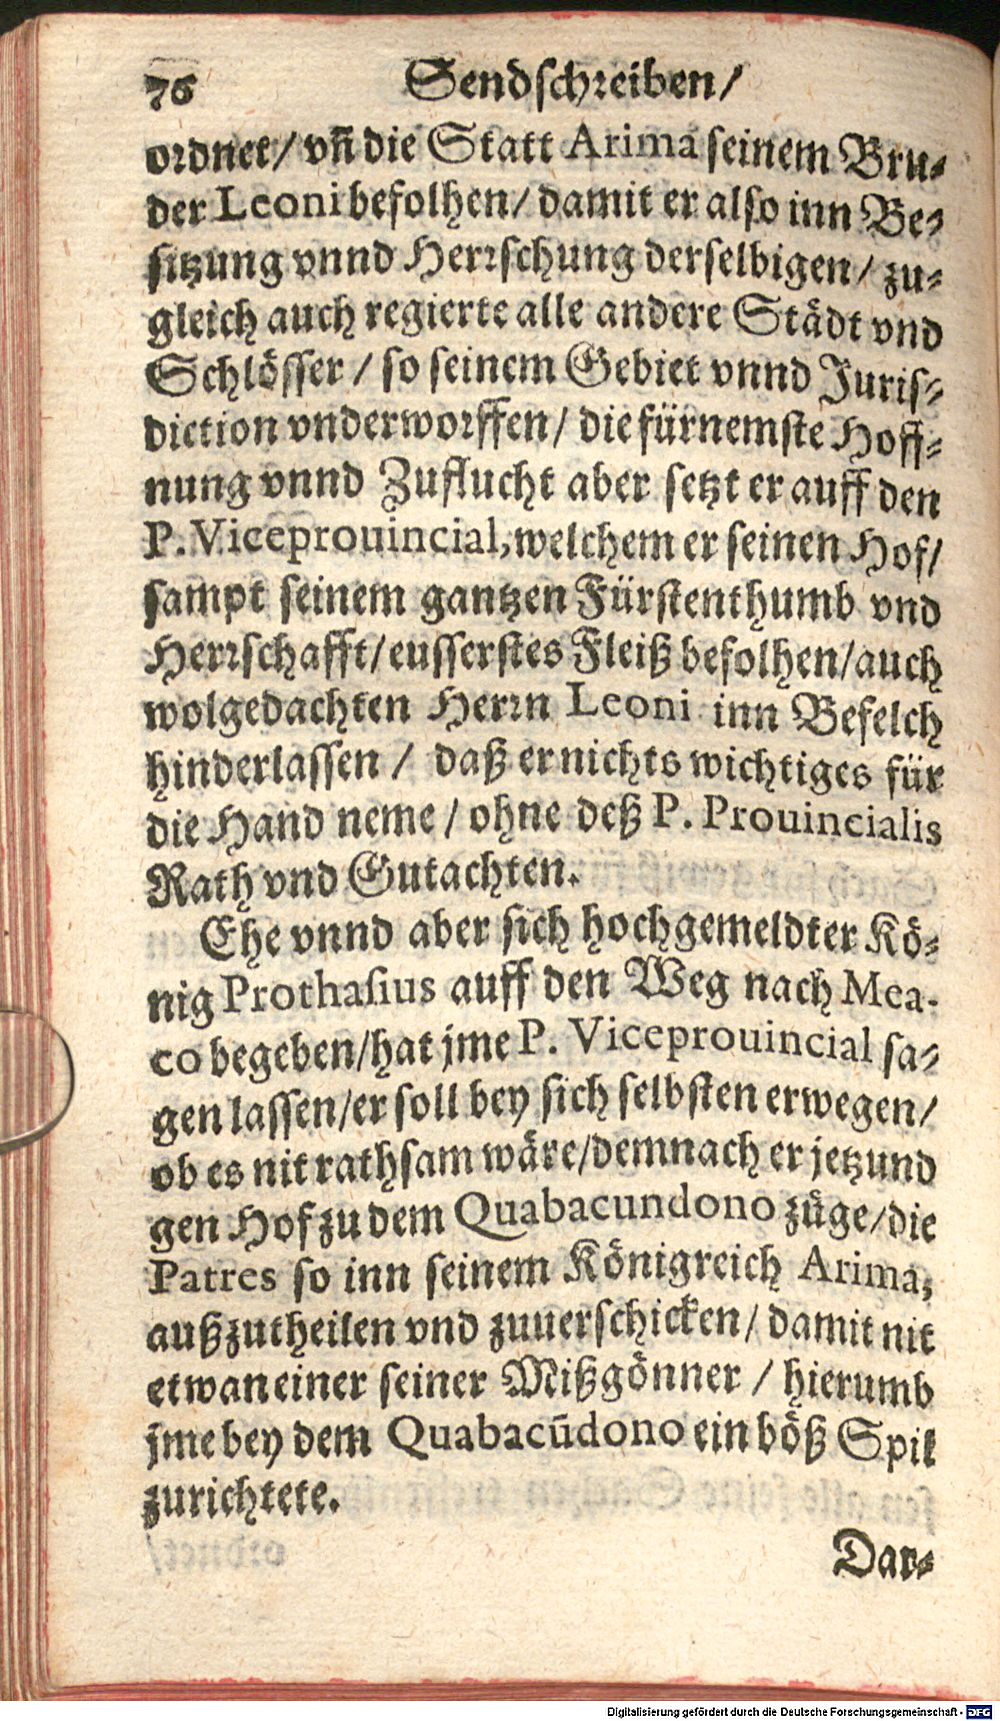 76 Sendschreiben/
ordnet/ vñ die Statt Arima seinem Bru-
der Leoni befolhen/ damit er also inn Be-
sitzung vnnd Herrschung derselbigen/ zu-
gleich auch regierte alle andere Städt vnd
Schlösser/ so seinem Gebiet vnnd Juris-
diction vnderworffen/ die fürnemste Hoff-
nung vnnd Zuflucht aber setzt er auff den
P. Viceprouincial, welchem er seinen Hof/
sampt seinem gantzen Fürstenthumb vnd
Herrschafft/ eusserstes Fleiß befolhen/ auch
wolgedachten Herrn Leoni inn Befelch
hinderlassen/ daß er nichts wichtiges für
die Hand neme/ ohne deß P. Prouincialis
Rath vnd Gutachten.
Ehe vnnd aber sich hochgemeldter Kö-
nig Prothasius auff den Weg nach Mea-
co begeben/ hat jme P. Viceprouincial sa-
gen lassen/ er soll bey sich selbsten erwegen/
ob es nit rathsam wäre/ demnach er jetzund
gen Hof zu dem Quabacundono züge/ die
Patres so inn seinem Königreich Arima,
außzutheilen vnd zuuerschicken/ damit nit
etwan einer seiner Mißgönner/ hierumb
jme bey dem Quabacūdono ein böß Spil
zurichtete.
Dar-
Digitalisierung gefördert durch die Deutsche Forschungsgemeinschaft - DFG